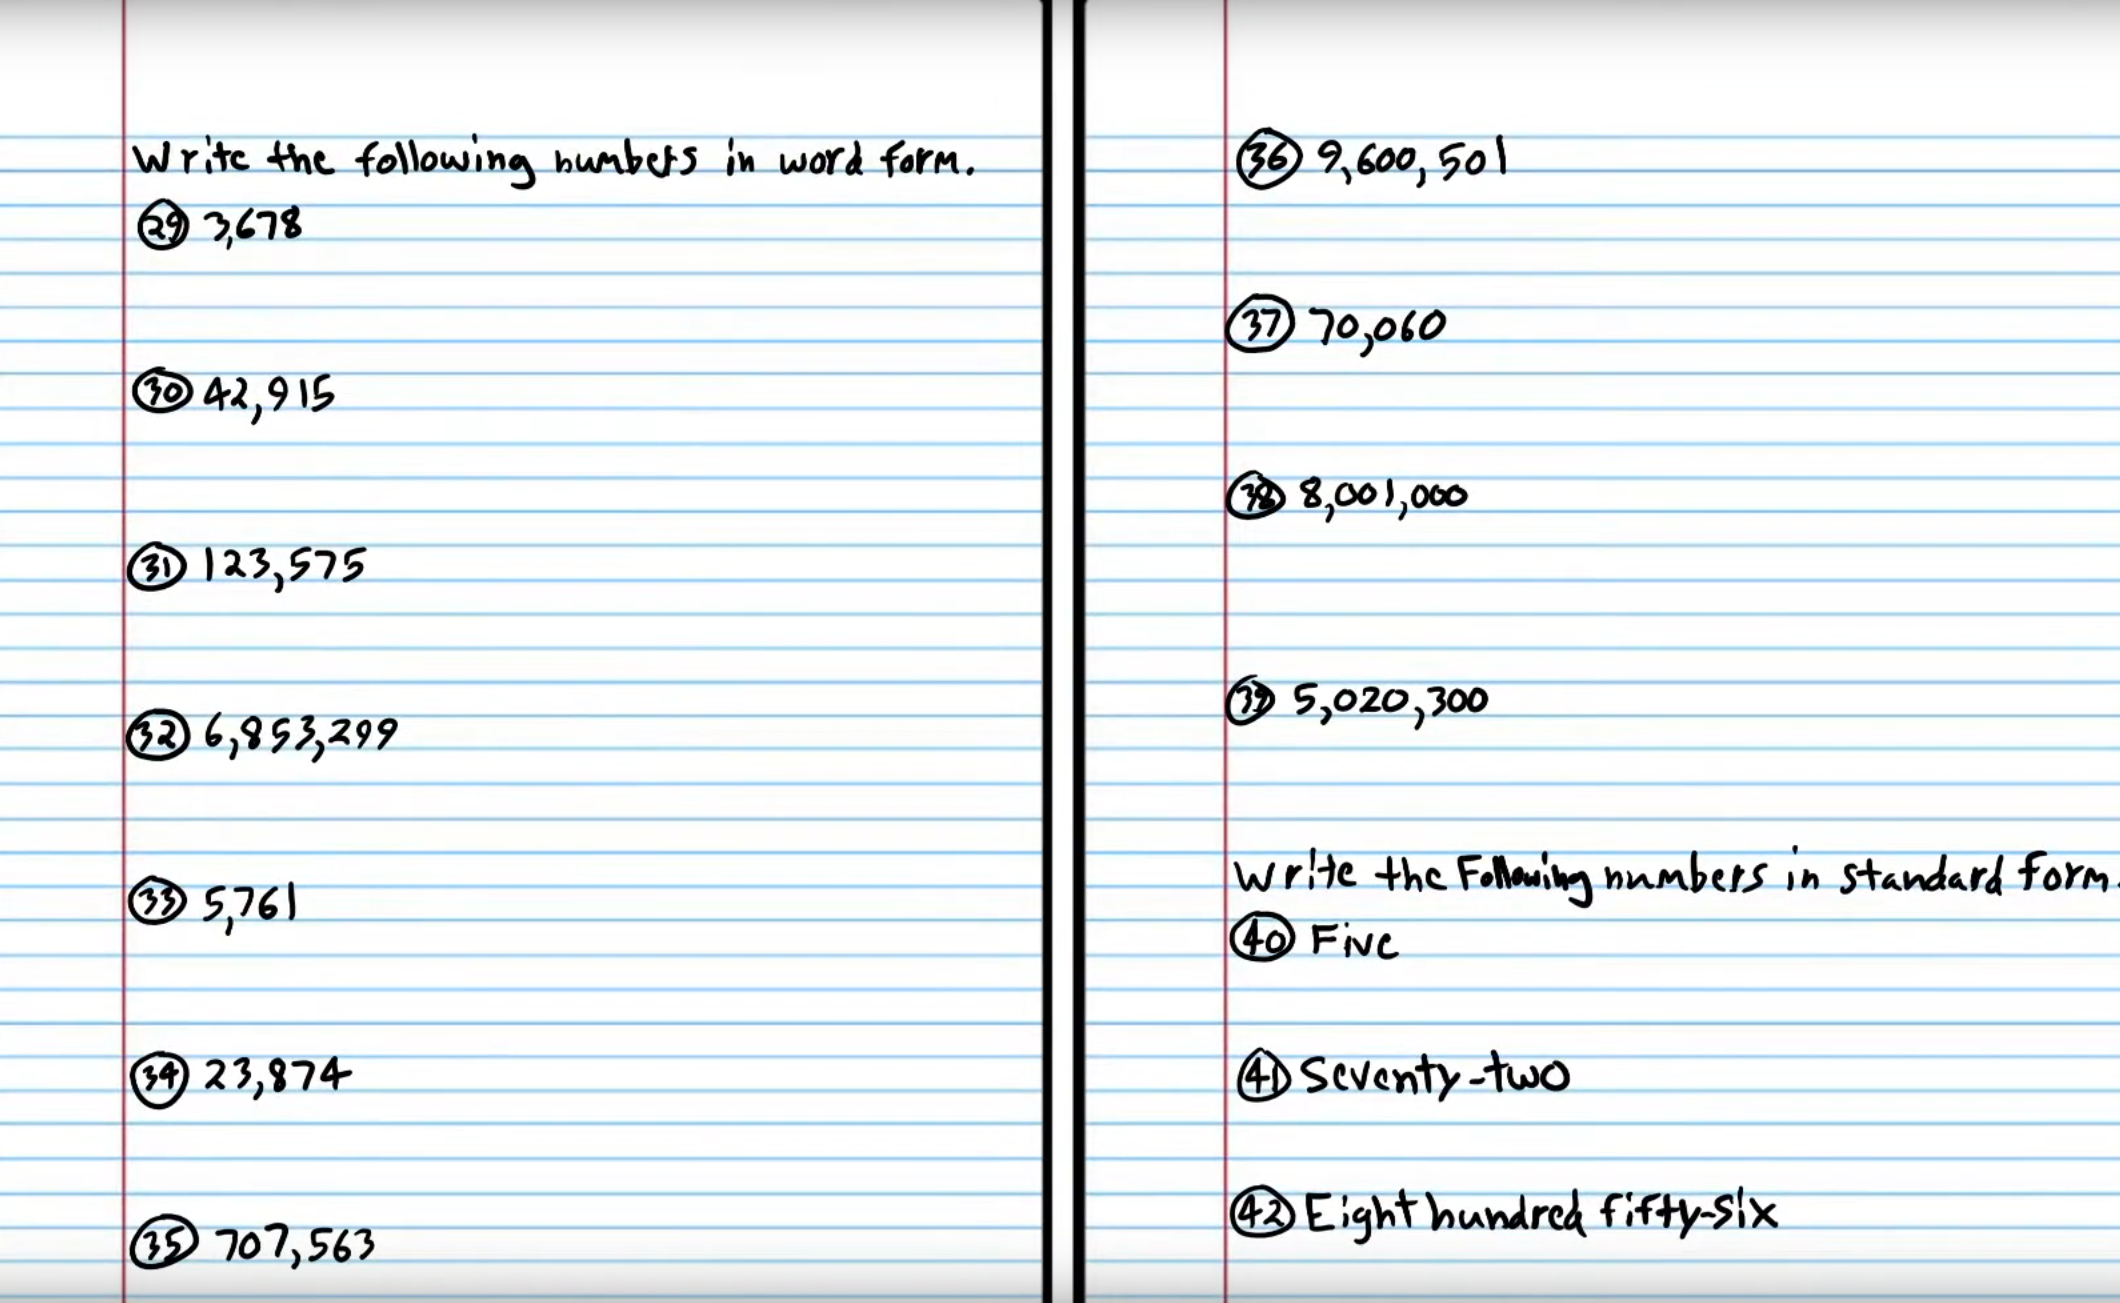 Write the following numbers in word form.
29 3,678
30 42,915
31 123,575
32 6,853,299
33 5,761
34 23,874
35 707,563
36 9,600,501
37 70,060
38 8,001,000
39 5,020,300
Write the Following numbers in standard form.
40 Five
41 Seventy-two
42 Eight hundred fifty-six